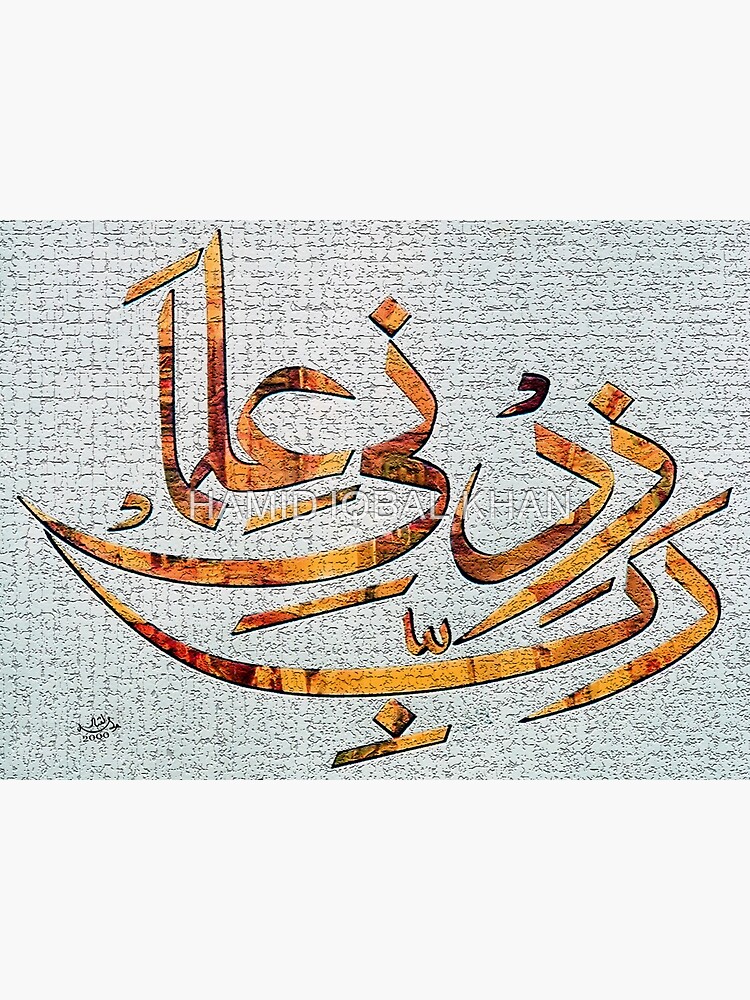 رَبِّ
زِدْنِي عِلْمًا
HAMID IQBAL KHAN
2000